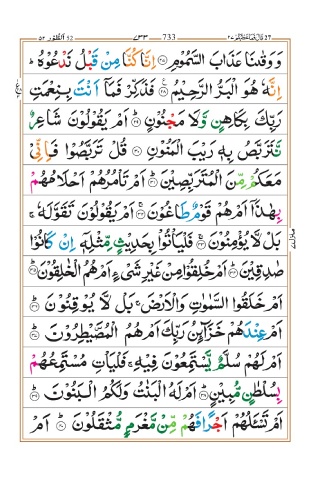 قال فما خطبكم ٢٧ 733 ٧٣٣ الطور 52 ٥٢
وَوَقٰىنَا عَذَابَ السَّمُوْمِ ﴿۲۷﴾ اِنَّا كُنَّا مِنْ قَبْلُ نَدْعُوْهُ ؕ
اِنَّهٗ هُوَ الْبَرُّ الرَّحِيْمُ ﴿۲۸﴾ فَذَكِّرْ فَمَاۤ اَنْتَ بِنِعْمَتِ
رَبِّكَ بِكَاهِنٍ وَّلَا مَجْنُوْنٍ ﴿۲۹﴾ اَمْ يَقُوْلُوْنَ شَاعِرٌ
نَّتَرَبَّصُ بِهٖ رَيْبَ الْمَنُوْنِ ﴿۳۰﴾ قُلْ تَرَبَّصُوْا فَاِنِّىْ
مَعَكُمْ مِّنَ الْمُتَرَبِّصِيْنَ ﴿۳۱﴾ اَمْ تَاْمُرُهُمْ اَحْلَامُهُمْ
بِهٰذَاۤ اَمْ هُمْ قَوْمٌ طَاغُوْنَ ﴿۳۲﴾ اَمْ يَقُوْلُوْنَ تَقَوَّلَهٗ ۚ
بَلْ لَّا يُؤْمِنُوْنَ ﴿۳۳﴾ فَلْيَاْتُوْا بِحَدِيْثٍ مِّثْلِهٖۤ اِنْ كَانُوْا
صٰدِقِيْنَ ﴿۳۴﴾ اَمْ خُلِقُوْا مِنْ غَيْرِ شَىْءٍ اَمْ هُمُ الْخٰلِقُوْنَ ﴿۳۵﴾
اَمْ خَلَقُوا السَّمٰوٰتِ وَالْاَرْضَ ۚ بَلْ لَّا يُوْقِنُوْنَ ﴿۳۶﴾
اَمْ عِنْدَهُمْ خَزَآٮِٕنُ رَبِّكَ اَمْ هُمُ الْمُصَۜيْطِرُوْنَ ﴿۳۷﴾
اَمْ لَهُمْ سُلَّمٌ يَّسْتَمِعُوْنَ فِيْهِ ۚ فَلْيَاْتِ مُسْتَمِعُهُمْ
بِسُلْطٰنٍ مُّبِيْنٍ ﴿۳۸﴾ اَمْ لَهُ الْبَنٰتُ وَلَكُمُ الْبَنُوْنَ ﴿۳۹﴾
اَمْ تَسْـَٔلُهُمْ اَجْرًا فَهُمْ مِّنْ مَّغْرَمٍ مُّثْقَلُوْنَ ﴿۴۰﴾ اَمْ